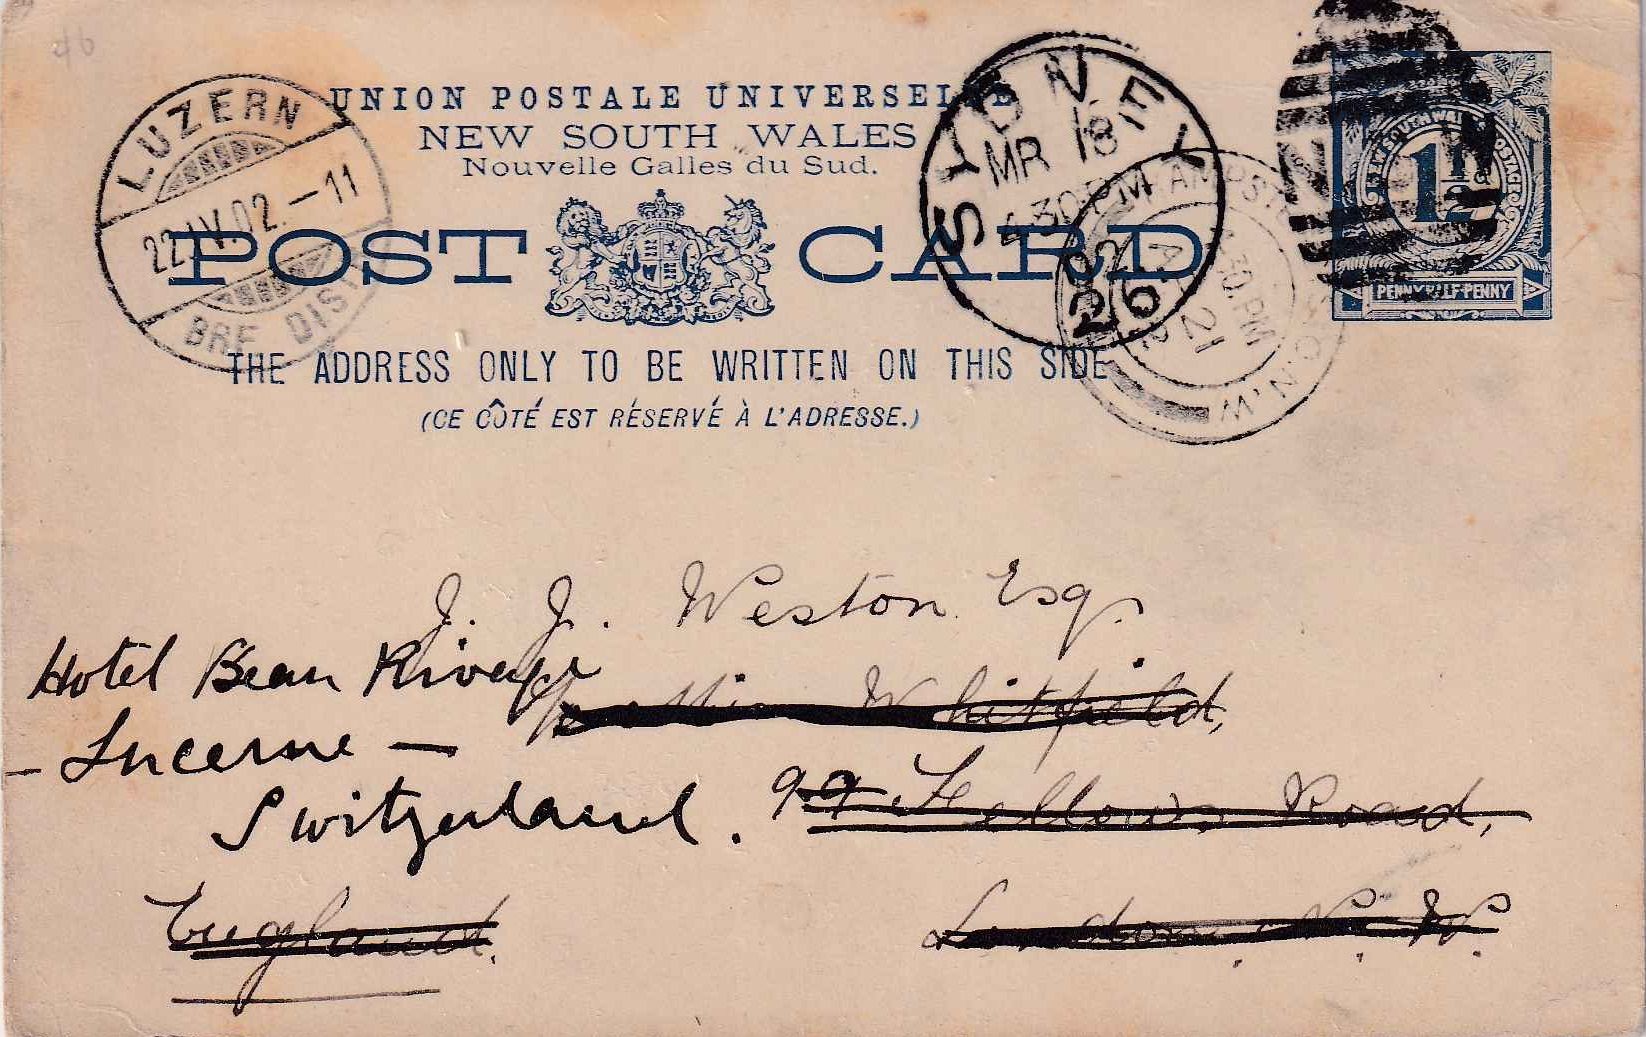 46
UNION POSTALE UNIVERSELLE
NEW SOUTH WALES
Nouvelle Galles du Sud.
POST CARD
THE ADDRESS ONLY TO BE WRITTEN ON THIS SIDE
(CE CÔTÉ EST RÉSERVÉ À L'ADRESSE.)
LUZERN
22.IV.02.-11
BRF. DIST
SYDNEY
MR 18
4 30 PM
02
26
HAMPSTEAD N.W
4.30.PM
AP 21
02
NEW SOUTH WALES POSTAGE
1½d
PENNY HALF-PENNY
J. J. Weston Esq.
Hotel Beau Rivage
Whitfield,
- Lucerne -
99 Fellows Road,
Switzerland.
England.
London. N. W.